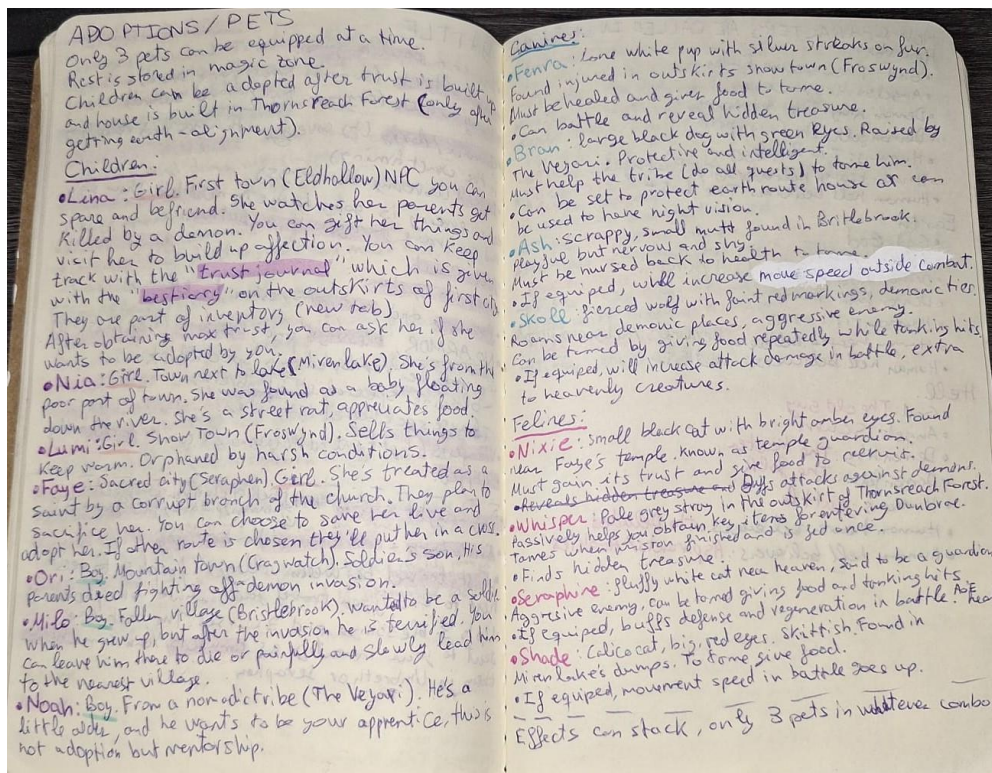 ADOPTIONS/PETS
Only 3 pets can be equipped at a time.
Rest is stored in magic zone.
Children can be adopted after trust is built up
and house is built in Thornsreach Forest (only after
getting earth-alignment).
Children:
• Lina: Girl. First town (Eldhallow) NPC you can
spare and befriend. She watches her parents get
killed by a demon. You can gift her things and
visit her to build up affection. You can keep
track with the "trust journal" which is given
with the "bestiary" on the outskirts of first city
They are part of inventory (new tab).
After obtaining max trust, you can ask her if she
wants to be adopted by you.
• Nia: Girl. Town next to lake (Mirenlake). She's from the
poor part of town. She was found as a baby floating
down the river. She's a street rat, appreciates food.
• Lumi: Girl. Snow Town (Froswynd). Sells things to
keep warm. Orphaned by harsh conditions.
• Faye: Sacred city (Seraphen) Girl. She's treated as a
saint by a corrupt branch of the church. They plan to
sacrifice her. You can choose to save her live and
adopt her. If other route is chosen they'll put her in a
• Ori: Boy. Mountain town (Cragwatch), Soldier's son, His
parents died fighting off demon invasion.
• Milo: Boy. Fallen village (Bristlebrook), wanted to be a
when he grew up, but after the invasion he is terrified. You
can leave him there to die or painfully and slowly lead him
to the nearest village.
• Noah: Boy. From a nomadic tribe (The Veyari). He's a
little older, and he wants to be your apprentice, this is
not adoption but mentorship.
Canines:
• Fenra: Lone white pup with silver streaks on fur.
Found injured in outskirts snowtown (Froswynd).
Must be healed and given food to tame.
• Can battle and reveal hidden treasure.
• Bran: large black dog with green eyes. Raised by
The Veyari. Protective and intelligent.
Must help the tribe (do all quests) to tame him.
• Can be set to protect earth route house or can
be used to have night vision.
• Ash: scrappy, small mutt found in Britlebrook.
Playful but nervous and shy.
Must be nursed back to health to tame.
• If equiped, will increase move speed outside combat.
• Skoll: fierced wolf with faint red markings, demonic ties.
Roams near demonic places, aggressive enemy.
Can be tamed by giving food repeatedly while tanking hits
• If equiped, will increase attack damage in battle, extra
to heavenly creatures.
Felines:
• Nixie: Small black cat with bright amber eyes. Found
near Faye's temple. Known as temple guardian.
Must gain its trust and give food to recruit.
• Reveals hidden treasure and Buffs attacks against demons.
• Whisper: Pale grey stray in the outskirt of Thornsreach Forest.
Passively helps you obtain key items for entering Dunbrae.
Tames when mission finished and is fed once.
• Finds hidden treasure.
• Seraphine: fluffy white cat near heaven, said to be a guardian
Aggressive enemy, can be tamed giving food and tanking hits
• If equiped, buffs defense and regeneration in battle AoE
• Shade: Calico cat, big, red eyes. Skittish. Found in
Mirenlake's dumps. To tame give food.
• If equiped, movement speed in battle goes up.
Effects can stack, only 3 pets in whatever combo